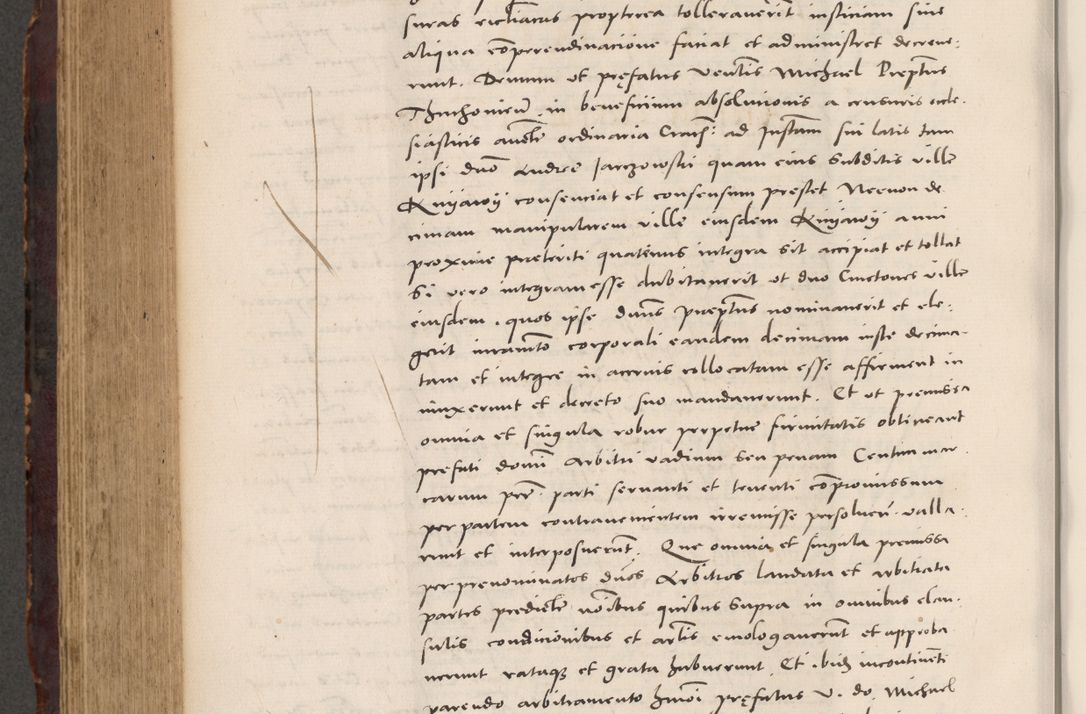 suras ecclesiasticas propterea tolleraverit iusticiam sine
aliqua comperendinacione faciat et administret decreve-
runt. Demum ut prefatus venerabilis Michael Preptus
in beneficium absolucionis a censuris eccle-
siasticis aucte ordinaria Crac. ad instam sui latis tam
ipsi dno Andree Jarczowski quam eius subditis ville
Knyawy consenciat et consensum prestet Necnon de-
cimam manipularem ville eiusdem Knyawy anni
proxime preteriti quatenus integra sit accipiat et tollat
Si vero integram esse dubitaverit ut duo Cmetones ville
eiusdem, quos ipse dnus Preptus nominaverit et ele-
gerit iuramto corporali eandem decimam iuste decima-
tam et integre in acervis collocatam esse affirment in
iunxerunt et decreto suo mandaverunt. Et ut premissa
omnia et singula robur perpetue firmitatis obtineant
prefati domi Arbitri vadium seu penam Centum mar-
carum per parti servanti et tenenti compromissum
per partem contravenientem irremisse persolven. valla-
runt et interposuerunt. Que omnia et singula premissa
per prenominatos dnos Arbitros laudata et arbitrata
partes predicte noibus quibus supra in omnibus clau-
sulis condicionibus et artlis emologaverunt et approba
verunt rataque et grata habuerunt Et ibidem incontinenti
parendo arbitramento hmoi prefatus V. do. Michael